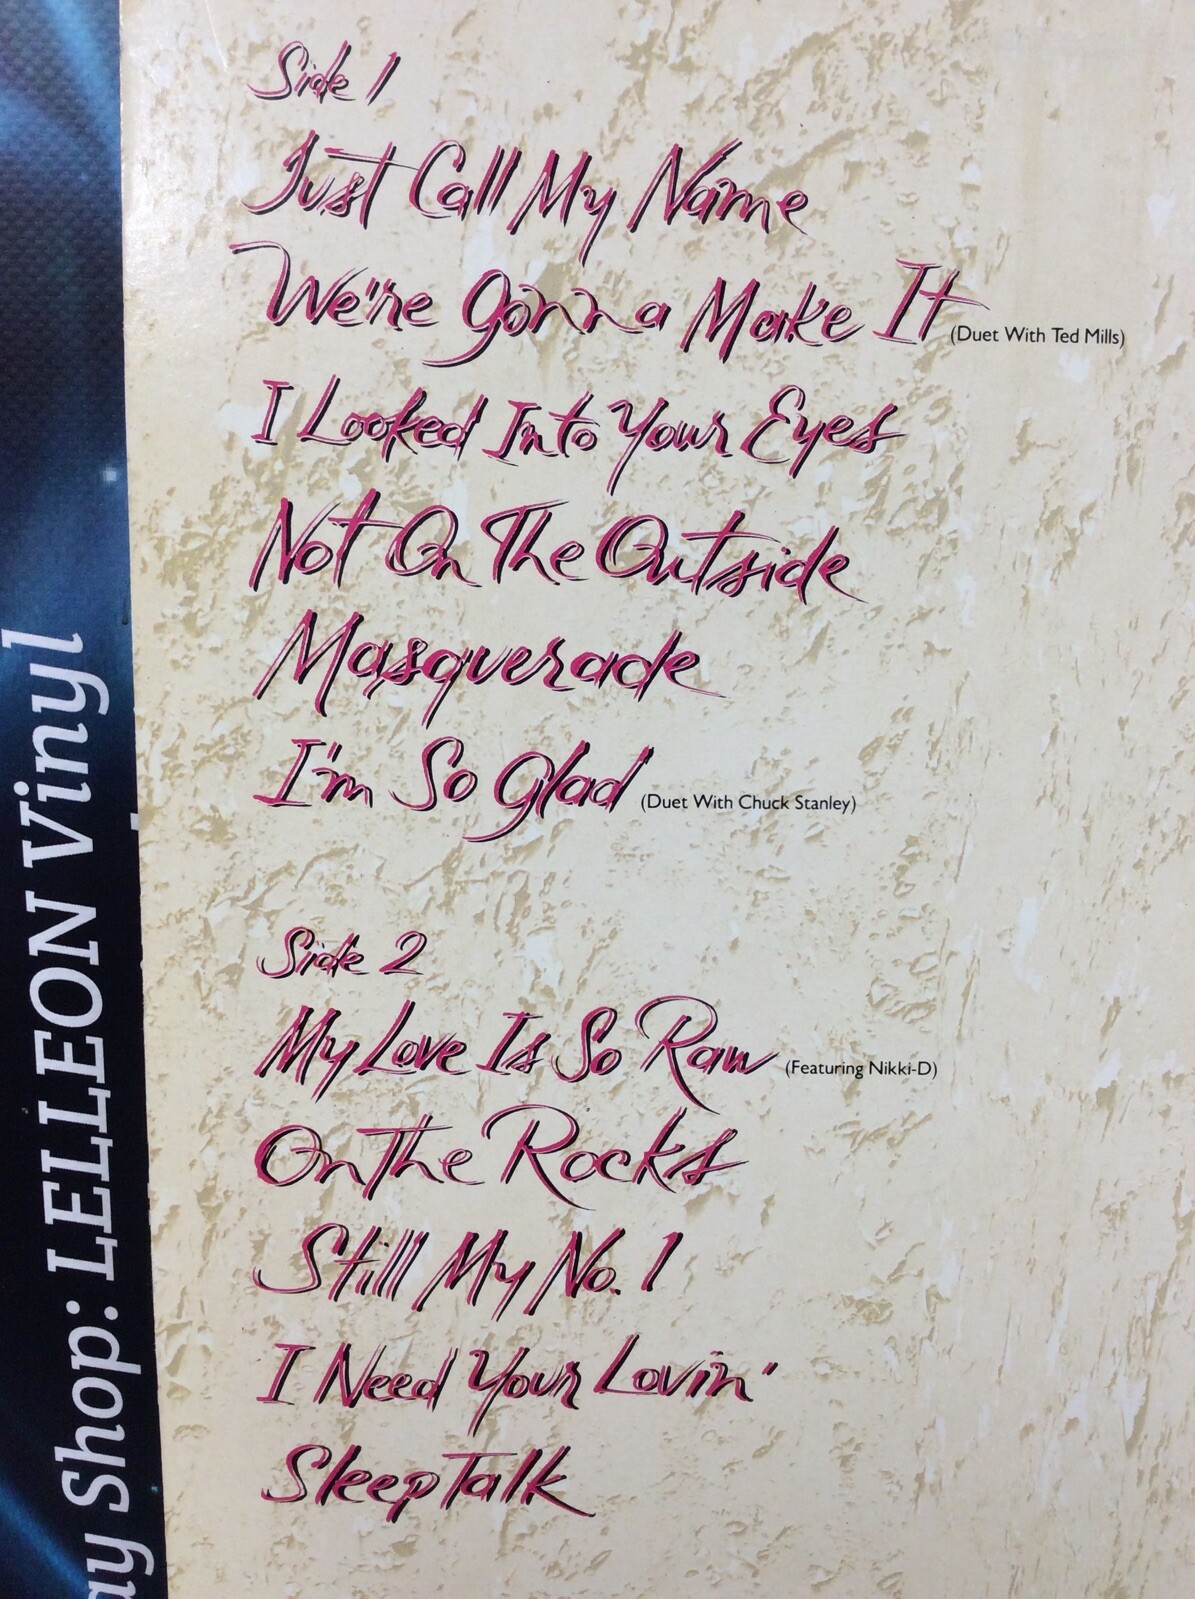 Side 1
Just Call My Name
We're Gonna Make It (Duet With Ted Mills)
I Looked Into Your Eyes
Not On The Outside
Masquerade
I'm So Glad (Duet With Chuck Stanley)
Side 2
My Love Is So Raw (Featuring Nikki-D)
On The Rocks
Still My No. 1
I Need Your Lovin'
Sleep Talk
ay Shop: LELLEON Vinyl